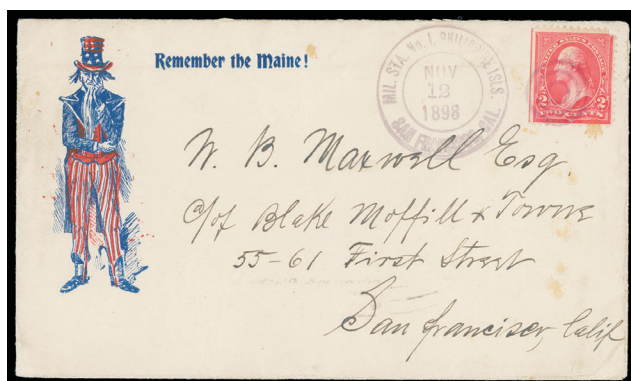 Remember the Maine!
MIL. STA. No. 1, PHILIPPINE ISLS.
NOV
12
1898
SAN FRANCISCO, CAL.
2 2
TWO CENTS
W. B. Maxwell Esq.
c/o of Blake Moffill & Towne
55-61 First Street
San Francisco, Calif